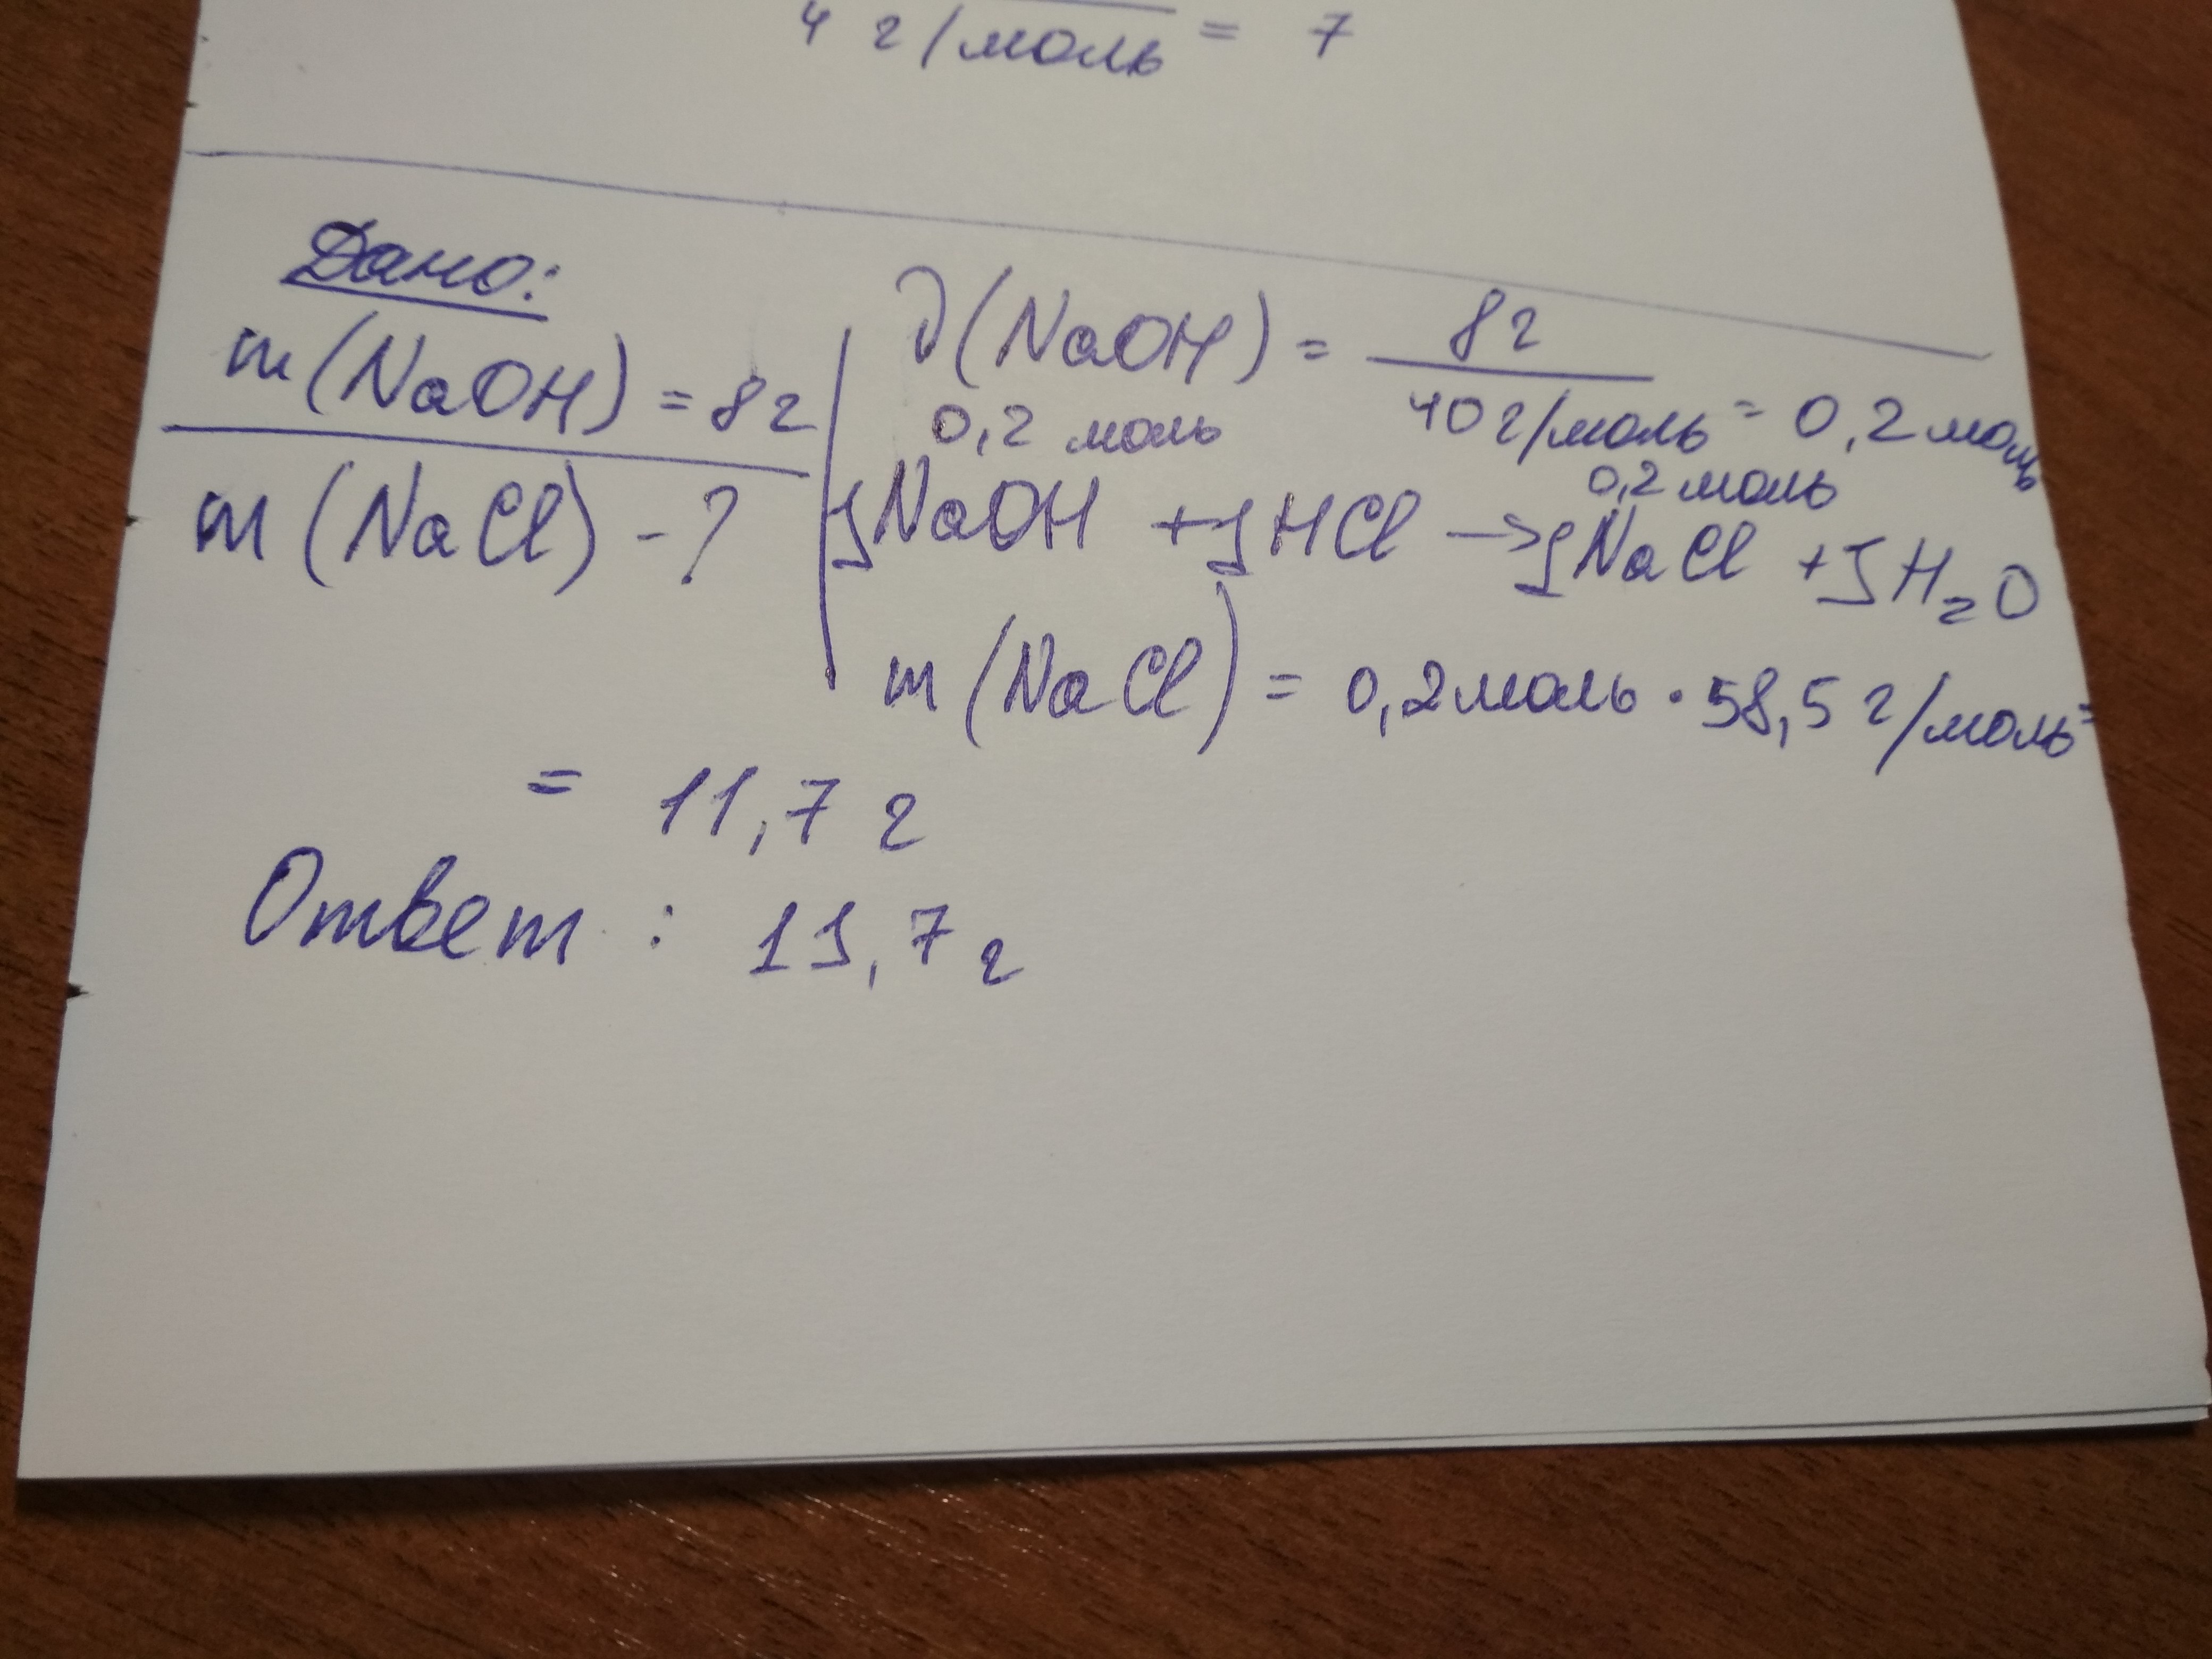 4 г/моль = 7
Дано:
m(NaOH) = 8г
m(NaCl) - ?
ν(NaOH) = 8г / 40г/моль = 0,2 моль
0,2 моль 0,2 моль
1NaOH + 1HCl → 1NaCl + 1H₂O
m(NaCl) = 0,2моль · 58,5 г/моль =
= 11,7 г
Ответ : 11,7 г